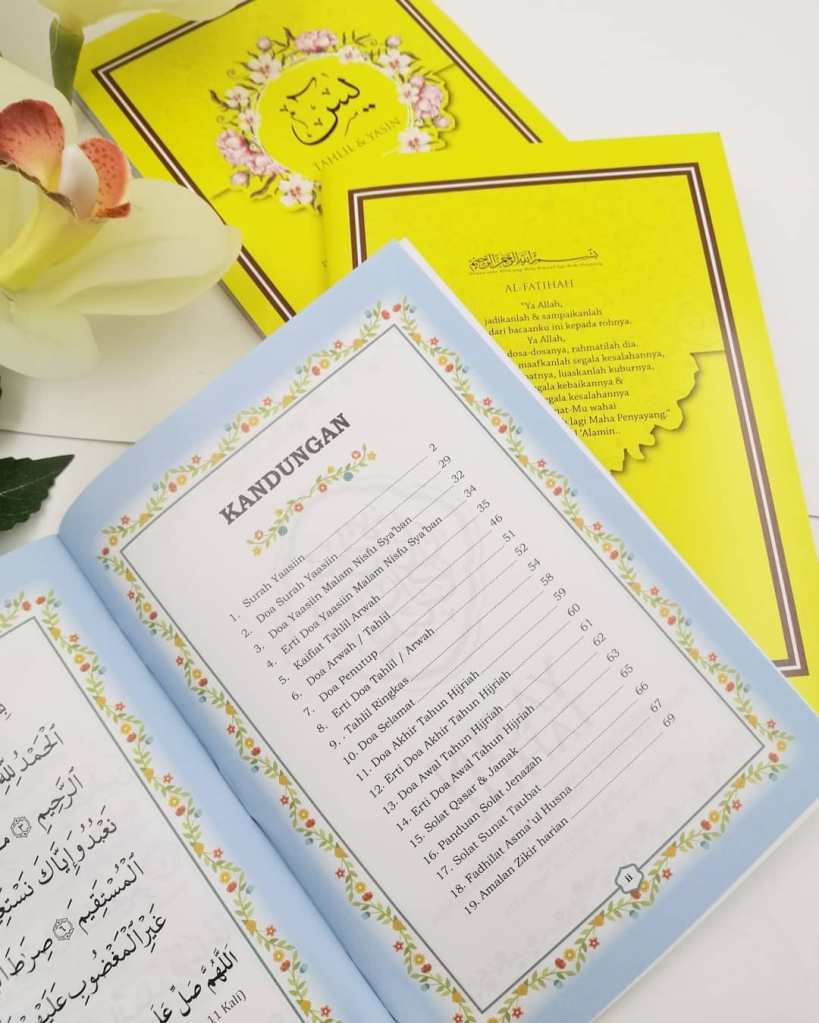 يس
TAHLIL & YASIN
بِسْمِ اللَّهِ الرَّحْمَٰنِ الرَّحِيمِ
AL-FATIHAH
"Ya Allah,
jadikanlah & sampaikanlah
dari bacaanku ini kepada rohnya.
Ya Allah,
dosa-dosanya, rahmatilah dia.
maafkanlah segala kesalahannya,
luaskanlah kuburnya,
kebaikannya &
kesalahannya
wahai
lagi Maha Penyayang."
'Alamin..
KANDUNGAN
1. Surah Yaasiin 2
2. Doa Surah Yaasiin 29
3. Doa Yaasiin Malam Nisfu Sya'ban 32
4. Erti Doa Yaasiin Malam Nisfu Sya'ban 34
5. Kaifiat Tahlil Arwah 35
6. Doa Arwah / Tahlil 46
7. Doa Penutup 51
8. Erti Doa Tahlil / Arwah 52
9. Tahlil Ringkas 54
10. Doa Selamat 58
11. Doa Akhir Tahun Hijriah 59
12. Erti Doa Akhir Tahun Hijriah 60
13. Doa Awal Tahun Hijriah 61
14. Erti Doa Awal Tahun Hijriah 62
15. Solat Qasar & Jamak 63
16. Panduan Solat Jenazah 65
17. Solat Sunat Taubat 66
18. Fadhilat Asma'ul Husna 67
19. Amalan Zikir harian 69
ii
ٱلْحَمْدُ لِلَّهِ
ٱلرَّحِيمِ ٣
نَعْبُدُ وَإِيَّاكَ
ٱلْمُسْتَقِيمَ ٦ صِرَٰطَ
غَيْرِ ٱلْمَغْضُوبِ
اللَّهُمَّ صَلِّ
11 Kali)